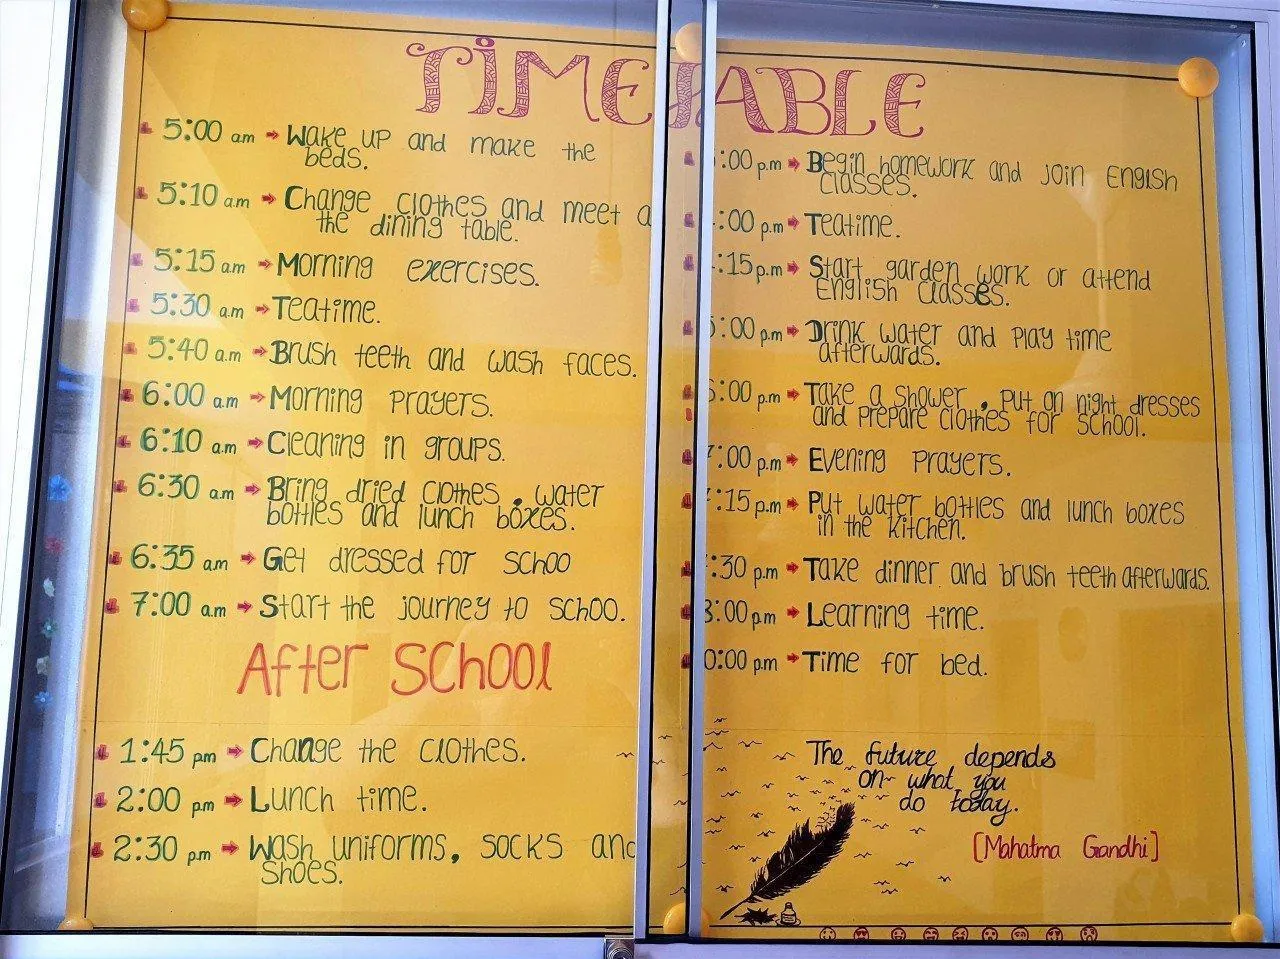 TIMETABLE
5:00 am Wake up and make the
beds.
5:10 am Change clothes and meet a
the dining table.
5:15 a.m Morning exercises.
5:30 am Teatime.
5:40 a.m Brush teeth and wash faces.
6:00 a.m Morning prayers.
6:10 a.m Cleaning in groups.
6:30 a.m Bring dried clothes, water
bottles and lunch boxes.
6:35 am Get dressed for schoo
7:00 a.m Start the journey to schoo.
After School
1:45 pm Change the clothes.
2:00 pm Lunch time.
2:30 p.m Wash uniforms, socks and
shoes.
:00 p.m Begin homework and join English
classes.
:00 p.m Teatime.
:15 p.m Start garden work or attend
English classes.
5:00 p.m Drink water and play time
afterwards.
6:00 p.m Take a shower, put on night dresses
and prepare clothes for school.
7:00 p.m Evening prayers.
:15 p.m Put water bottles and lunch boxes
in the kitchen.
:30 p.m Take dinner and brush teeth afterwards.
8:00 p.m Learning time.
0:00 p.m Time for bed.
The future depends
on what you
do today.
[Mahatma Gandhi]